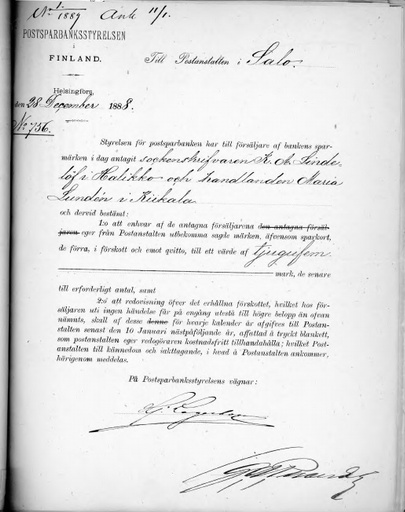 N. 1/1889 Ank 11/1.
POSTSPARBANKSSTYRELSEN
i
FINLAND.
Till Postanstalten i Salo.
Helsingfors,
den 28 December 1888.
No 756.
Styrelsen för postsparbanken har till försäljare af bankens spar-
märken i dag antagit sockenskrifvaren K. A. Linde
löf i Halikko och handlanden Maria
Lundén i Kiikala
och dervid bestämt:
1:o att enhvar af de antagna försäljarena den antagna försäl-
jaren eger från Postanstalten utbekomma sagde märken, äfvensom sparkort,
de förra, i förskott och emot qvitto, till ett värde af tjugufem
mark, de senare
till erforderligt antal, samt
2:o att redovisning öfver det erhållna förskottet, hvilket hos för-
säljaren uti ingen händelse får på engång utestå till högre belopp än ofvan
nämnts, skall af desse denne för hvarje kalender år afgifves till Postan-
stalten senast den 10 Januari nästpåföljande år, affattad å tryckt blankett,
som postanstalten eger redogöraren kostnadsfritt tillhandahålla; hvilket Post-
anstalten till kännedom och iakttagande, i hvad å Postanstalten ankommer,
härigenom meddelas.
På Postsparbanksstyrelsens vägnar: